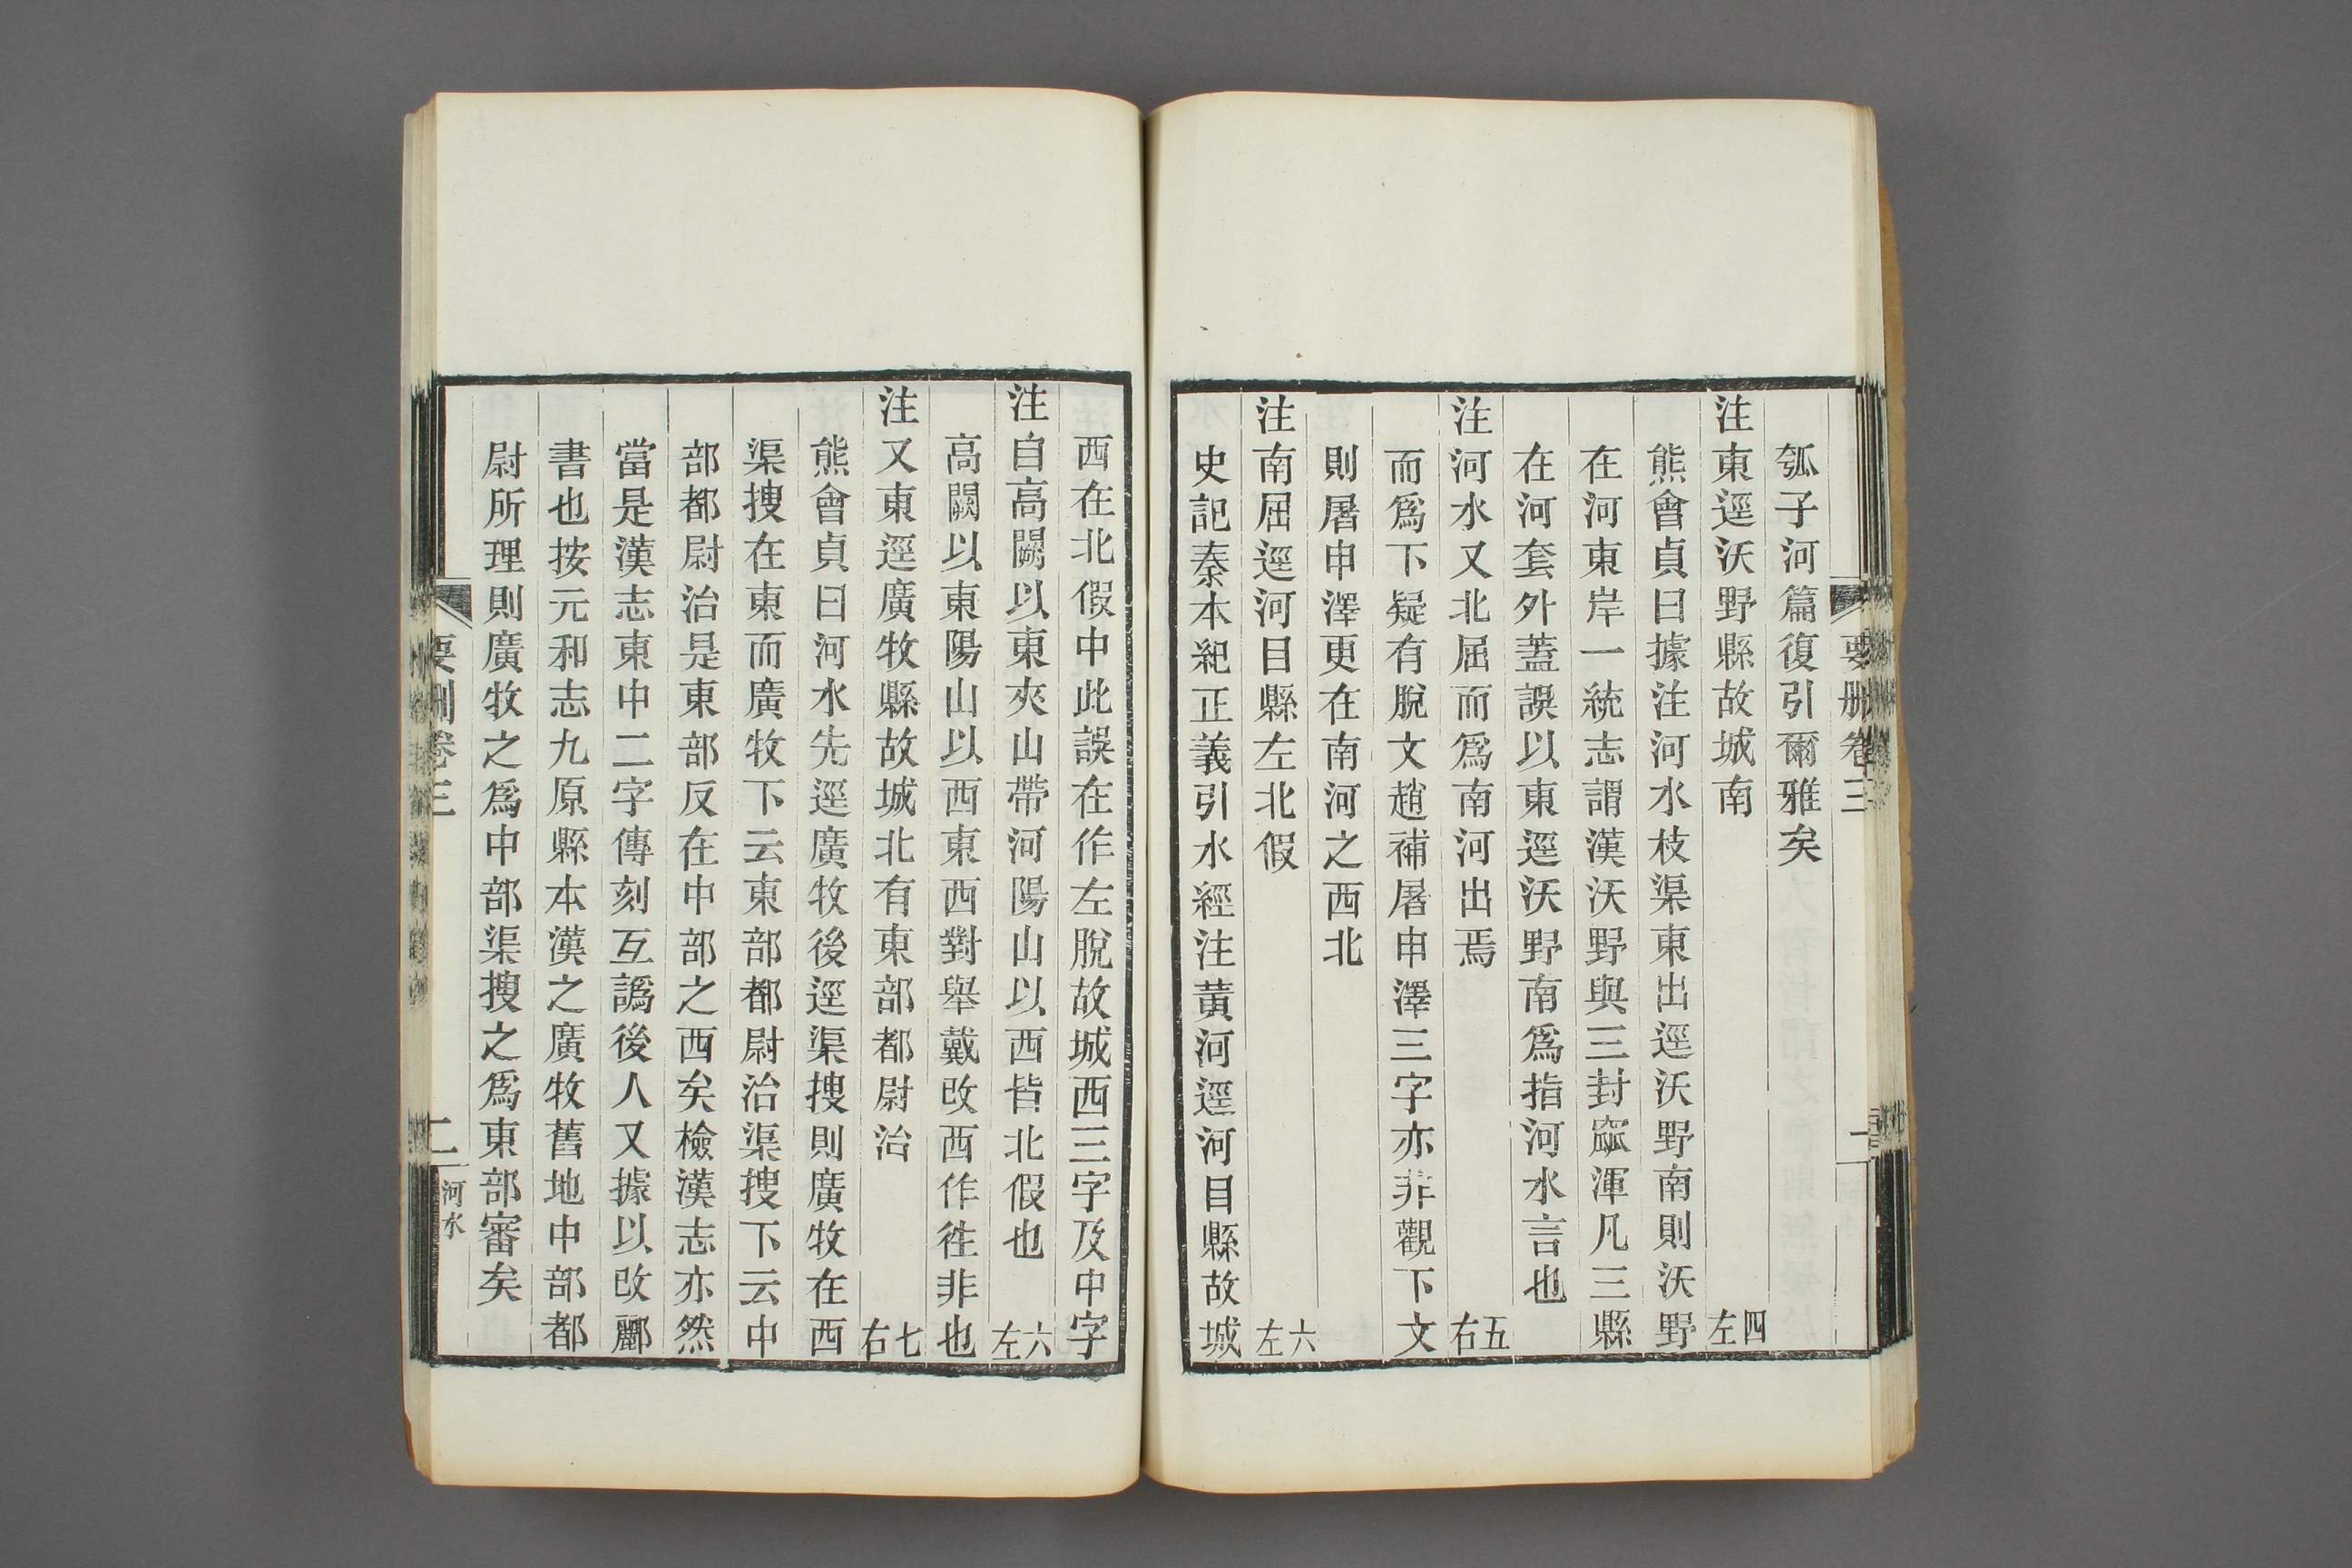 要刪卷三
一
瓠子河篇復引爾雅矣
注東逕沃野縣故城南 四左
熊會貞曰據注河水枝渠東出逕沃野南則沃野
在河東岸一統志謂漢沃野與三封窳渾凡三縣
在河套外蓋誤以東逕沃野南爲指河水言也
注河水又北屈而爲南河出焉 五右
而爲下疑有脫文趙補屠申澤三字亦非觀下文
則屠申澤更在南河之西北
注南屈逕河目縣左北假 六左
史記秦本紀正義引水經注黃河逕河目縣故城
西在北假中此誤在作左脫故城西三字及中字
注自高闕以東夾山帶河陽山以西皆北假也 六左
高闕以東陽山以西東西對舉戴改西作徃非也
注又東逕廣牧縣故城北有東部都尉治 七右
熊會貞曰河水先逕廣牧後逕渠搜則廣牧在西
渠搜在東而廣牧下云東部都尉治渠搜下云中
部都尉治是東部反在中部之西矣檢漢志亦然
當是漢志東中二字傳刻互譌後人又據以改酈
書也按元和志九原縣本漢之廣牧舊地中部都
尉所理則廣牧之爲中部渠搜之爲東部審矣
要刪卷三
二
河水